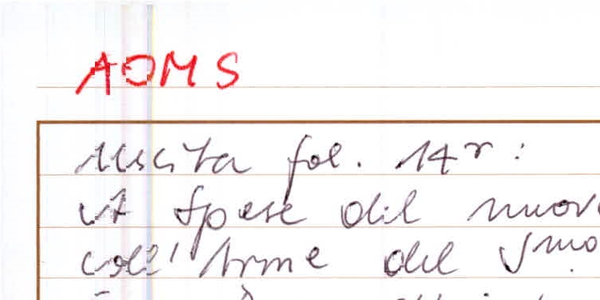 AOMS
Uscita fol. 14r:
Spese del nuov
coll' Arme del Smo